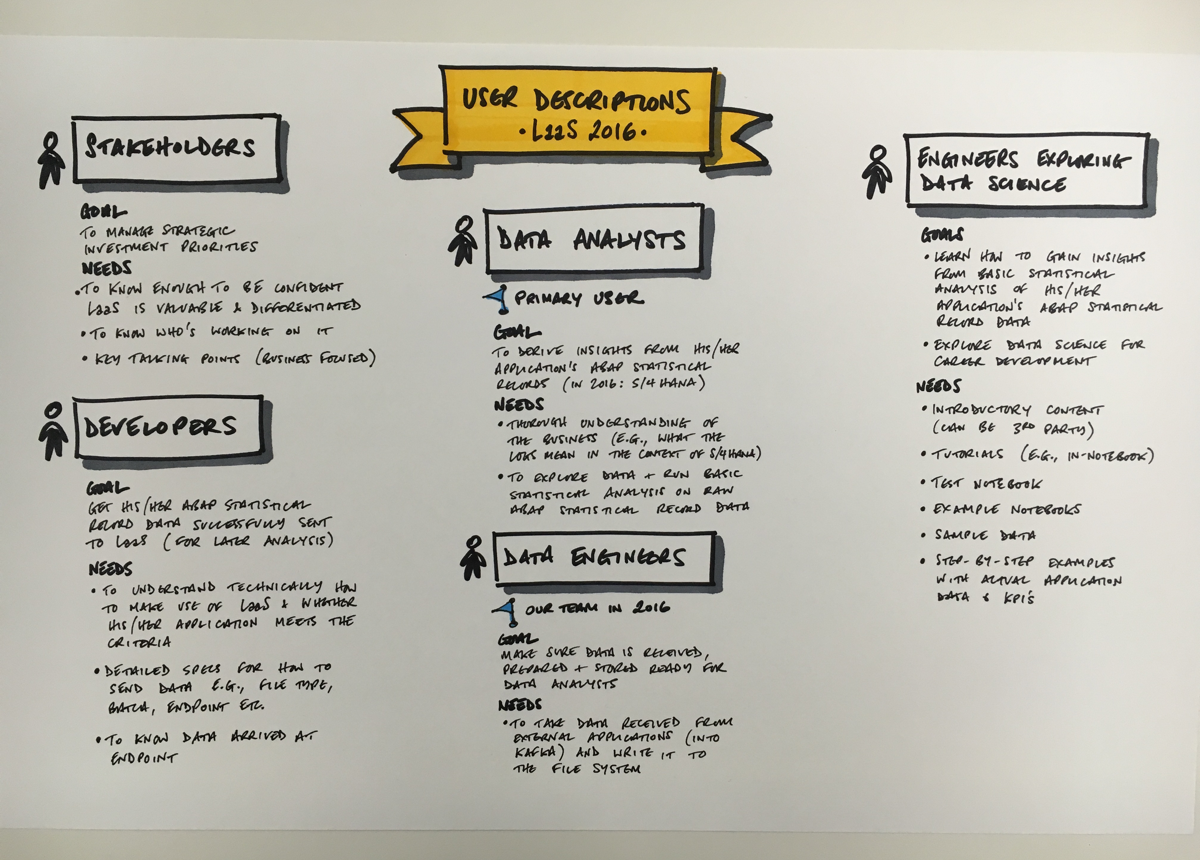 USER DESCRIPTIONS
• LaaS 2016 •
STAKEHOLDERS
GOAL
TO MANAGE STRATEGIC
INVESTMENT PRIORITIES
NEEDS
• TO KNOW ENOUGH TO BE CONFIDENT
LaaS IS VALUABLE & DIFFERENTIATED
• TO KNOW WHO'S WORKING ON IT
• KEY TALKING POINTS (BUSINESS FOCUSED)
DEVELOPERS
GOAL
GET HIS/HER ABAP STATISTICAL
RECORD DATA SUCCESSFULLY SENT
TO LaaS (FOR LATER ANALYSIS)
NEEDS
• TO UNDERSTAND TECHNICALLY HOW
TO MAKE USE OF LaaS & WHETHER
HIS/HER APPLICATION MEETS THE
CRITERIA
• DETAILED SPECS FOR HOW TO
SEND DATA E.G., FILE TYPE,
BATCH, ENDPOINT ETC.
• TO KNOW DATA ARRIVED AT
ENDPOINT
DATA ANALYSTS
PRIMARY USER
GOAL
TO DERIVE INSIGHTS FROM HIS/HER
APPLICATION'S ABAP STATISTICAL
RECORDS (IN 2016: S/4 HANA)
NEEDS
• THOROUGH UNDERSTANDING OF
THE BUSINESS (E.G., WHAT THE
LOGS MEAN IN THE CONTEXT OF S/4 HANA)
• TO EXPLORE DATA + RUN BASIC
STATISTICAL ANALYSIS ON RAW
ABAP STATISTICAL RECORD DATA
DATA ENGINEERS
OUR TEAM IN 2016
GOAL
MAKE SURE DATA IS RECEIVED,
PREPARED + STORED READY FOR
DATA ANALYSTS
NEEDS
• TO TAKE DATA RECEIVED FROM
EXTERNAL APPLICATIONS (INTO
KAFKA) AND WRITE IT TO
THE FILE SYSTEM
ENGINEERS EXPLORING
DATA SCIENCE
GOALS
• LEARN HOW TO GAIN INSIGHTS
FROM BASIC STATISTICAL
ANALYSIS OF HIS/HER
APPLICATION'S ABAP STATISTICAL
RECORD DATA
• EXPLORE DATA SCIENCE FOR
CAREER DEVELOPMENT
NEEDS
• INTRODUCTORY CONTENT
(CAN BE 3RD PARTY)
• TUTORIALS (E.G., IN-NOTEBOOK)
• TEST NOTEBOOK
• EXAMPLE NOTEBOOKS
• SAMPLE DATA
• STEP-BY-STEP EXAMPLES
WITH ACTUAL APPLICATION
DATA & KPI'S